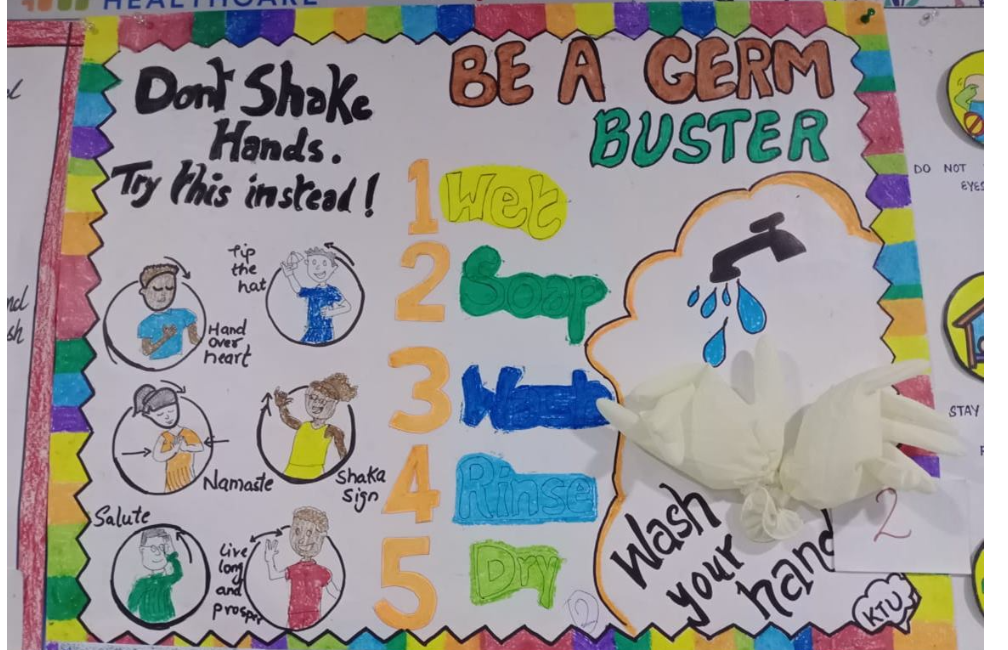 HEALTHCARE
Dont Shake
Hands.
Try this instead!
Hand
over
heart
Tip
the
hat
Namaste
Shaka
Sign
Salute
Live
long
and
prosper
BE A GERM
BUSTER
1 Wet
2 Soap
3 Wash
4 Rinse
5 Dry
2
Wash
your
hand
2
KTU
DO NOT
EYES
STAY